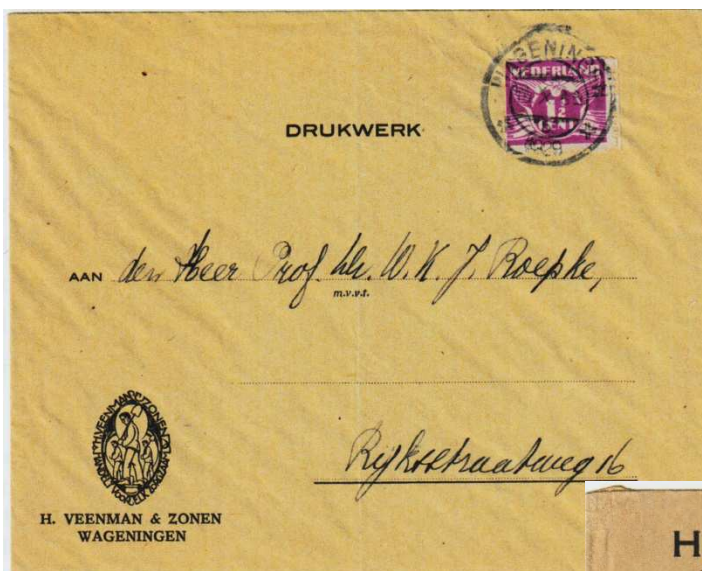 WAGENINGEN
NEDERLAND
1½
CENT
1929
DRUKWERK
AAN den Heer Prof. Dr. W. K. J. Roepke,
m.v.v.t.
Rijksstraatweg 16
H. VEENMAN & ZONEN
H. VEENMAN & ZONEN
WAGENINGEN
H